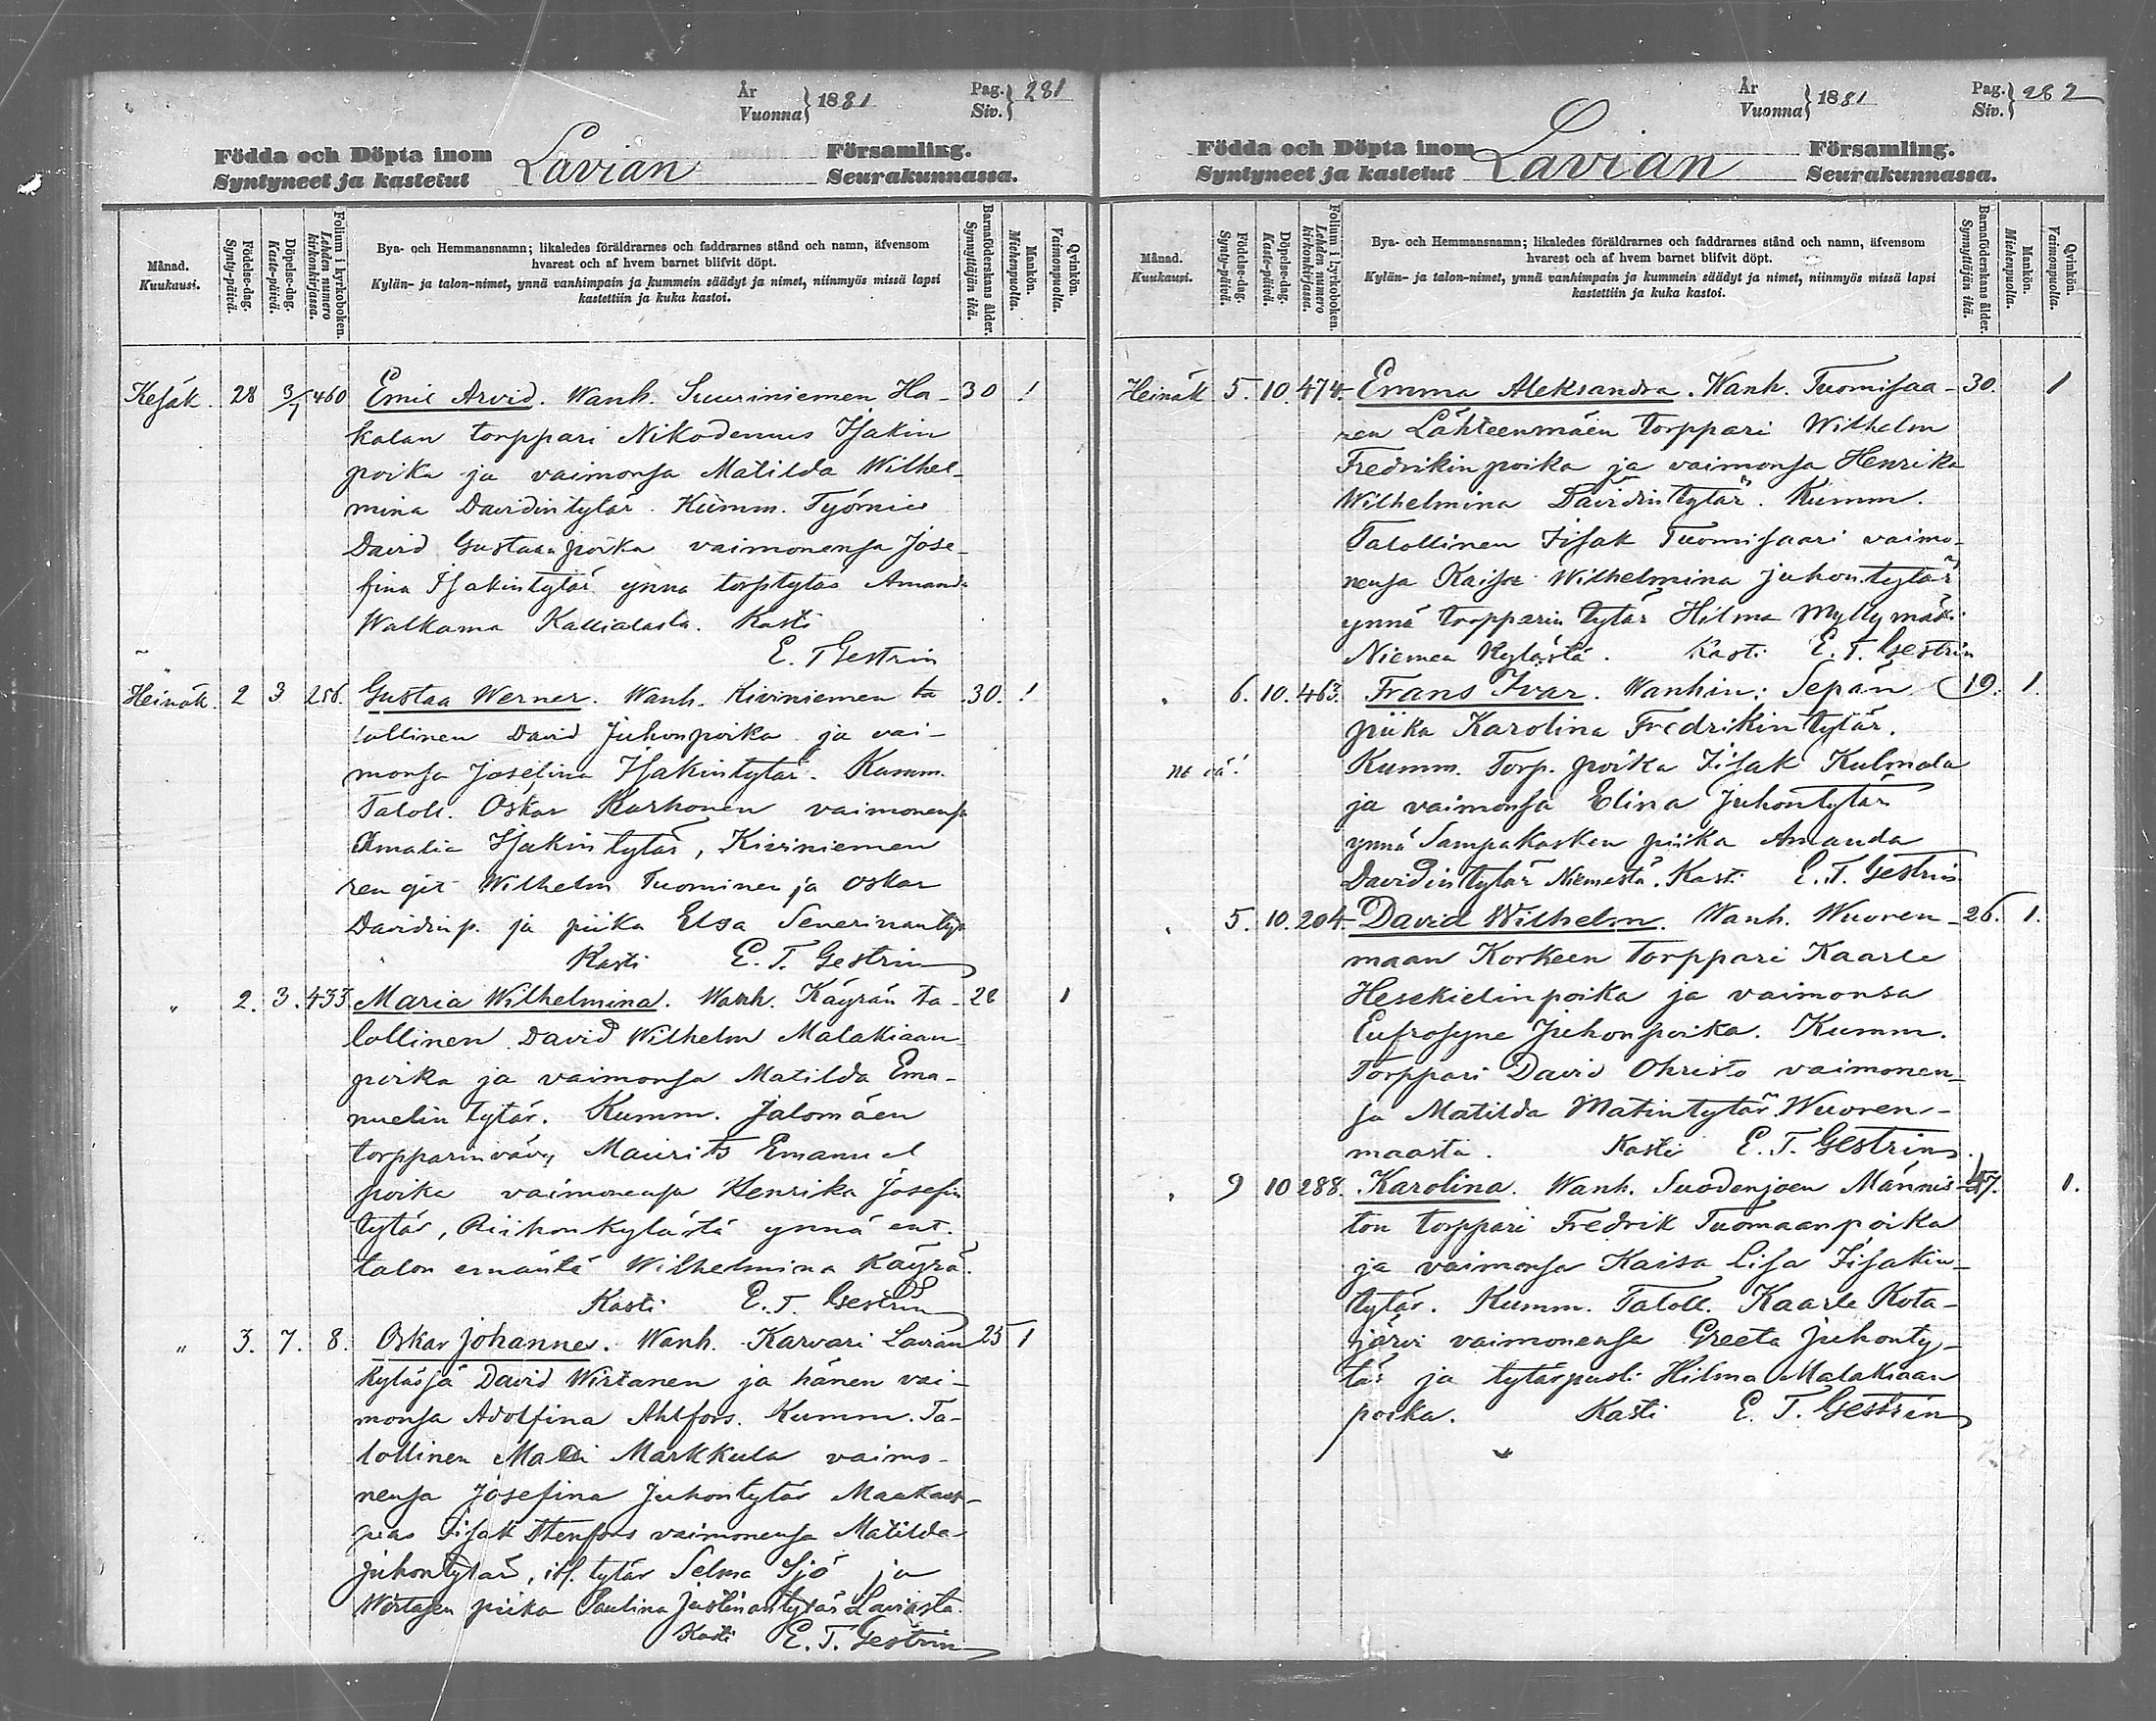 År
Vuonna } 1881
Pag.
Siv. } 281
Födda och Döpta inom
Syntyneet ja kastetut
Lavian
Församling.
Seurakunnassa.
Månad.
Kuukausi.
Födelse-dag.
Synty-päivä.
Döpelse-dag.
Kaste-päivä.
Folium i kyrkoboken.
Lehden numero
kirkonkirjassa.
Bya- och Hemmansnamn; likaledes föräldrarnes och faddrarnes stånd och namn, äfvensom
hvarest och af hvem barnet blifvit döpt.
Kylän- ja talon-nimet, ynnä vanhimpain ja kummein säädyt ja nimet, niinmyös missä lapsi
kastettiin ja kuka kastoi.
Barnaföderskans ålder.
Synnyttäjän ikä.
Mankön.
Miehenpuolta.
Qvinkön.
Vaimonpuolta.
Kesäk. 28 3/7 460 Emil Arvid. Wanh. Suuriniemen Ha- 30 1
kalan torppari Nikodemus Isakin
poika ja vaimonsa Matilda Wilhel-
mina Davidintytär. Kumm. Työmies
David Gustaanpoika vaimonensa Jose-
fina Isakintytär ynna torp tytär Amanda
Walkama Kallialasta. Kasti
E. T Gestrin
Heinäk. 2 3 256. Gustaa Werner. Wanh. Kiviniemen ta 30. 1
lollinen David Juhonpoika ja vai-
monsa Josefina Isakintytär. Kumm.
Taloll. Oskar Karhonen vaimonensa
Amalia Isakintytär, Kiviniemen
rengit Wilhelm Tuominen ja Oskar
Davidinp. ja piika Elsa
Kasti E. T. Gestrin
" 2. 3. 433 Maria Wilhelmina. Wanh. Käyrän ta- 28 1
lollinen David Wilhelm Malakiaan-
poika ja vaimonsa Matilda Ema-
nuelin tytär. Kumm. Jalomäen
torpparinvävy Maurits Emanuel
poika vaimonensa Henrika Josefin
tytär, Riihonkylästä ynnä ent.
talon emäntä Wilhelmina Käyrä.
Kasti E. T. Gestrin
" 3. 7. 8. Oskar Johannes. Wanh. Karvari Lavian 25 1
kylässä David Wirtanen ja hänen vai-
monsa Adolfina Ahlfors. Kumm. Ta-
lollinen Matti Markkula vaimo-
nensa Josefina Juhontytär Maakaup-
pias Iisak Stenfors vaimonensa Matilda
Juhontytär, itl. tytär Selma Sjö ja
Wirtasen piika Paulina Justinantytär Laviasta.
Kasti E. T. Gestrin
År
Vuonna } 1881
Pag.
Siv. } 282
Födda och Döpta inom
Syntyneet ja kastetut
Lavian
Församling.
Seurakunnassa.
Månad.
Kuukausi.
Födelse-dag.
Synty-päivä.
Döpelse-dag.
Kaste-päivä.
Folium i kyrkoboken.
Lehden numero
kirkonkirjassa.
Bya- och Hemmansnamn; likaledes föräldrarnes och faddrarnes stånd och namn, äfvensom
hvarest och af hvem barnet blifvit döpt.
Kylän- ja talon-nimet, ynnä vanhimpain ja kummein säädyt ja nimet, niinmyös missä lapsi
kastettiin ja kuka kastoi.
Barnaföderskans ålder.
Synnyttäjän ikä.
Mankön.
Miehenpuolta.
Qvinkön.
Vaimonpuolta.
Heinäk 5. 10. 474. Emma Aleksandra. Wanh. Tuomisaa- 30. 1
ren Lähteenmäen torppari Wilhelm
Fredrikinpoika ja vaimonsa Henrika
Wilhelmina Davidintytär. Kumm.
Talollinen Iisak Tuomisaari vaimo-
nensa Kaisa Wilhelmina Juhontytär
ynnä torpparin tytär Hilma Myllymäki
Niemen kylästä. Kasti E. T. Gestrin
" 6. 10. 463. Frans Ivar. Wanhin: Sepän 19. 1.
piika Karolina Fredrikintytär.
Kumm. Torp. poika Iisak Kulmala
ja vaimonsa Elina Juhontytär
ynnä Sampakosken piika Amanda
Davidintytär Niemestä. Kasti E. T. Gestrin
" 5. 10. 204. David Wilhelm. Wanh. Wuoren- 26. 1.
maan Korkeen torppari Kaarle
Hesekielinpoika ja vaimonsa
Eufrosyne Juhonpoika. Kumm.
Torppari David Ohristo vaimonen-
sa Matilda Matintytär Wuoren-
maasta. Kasti E. T. Gestrin.
" 9 10 288. Karolina. Wanh. Suodenjoen Männis- 47. 1.
ton torppari Fredrik Tuomaanpoika
ja vaimonsa Kaisa Lisa Iisakin-
tytär. Kumm. Taloll. Kaarle Kota-
järvi vaimonensa Greeta Juhonty-
tär ja tytärpuoli Hilma Malakiaan
poika. Kasti E. T. Gestrin